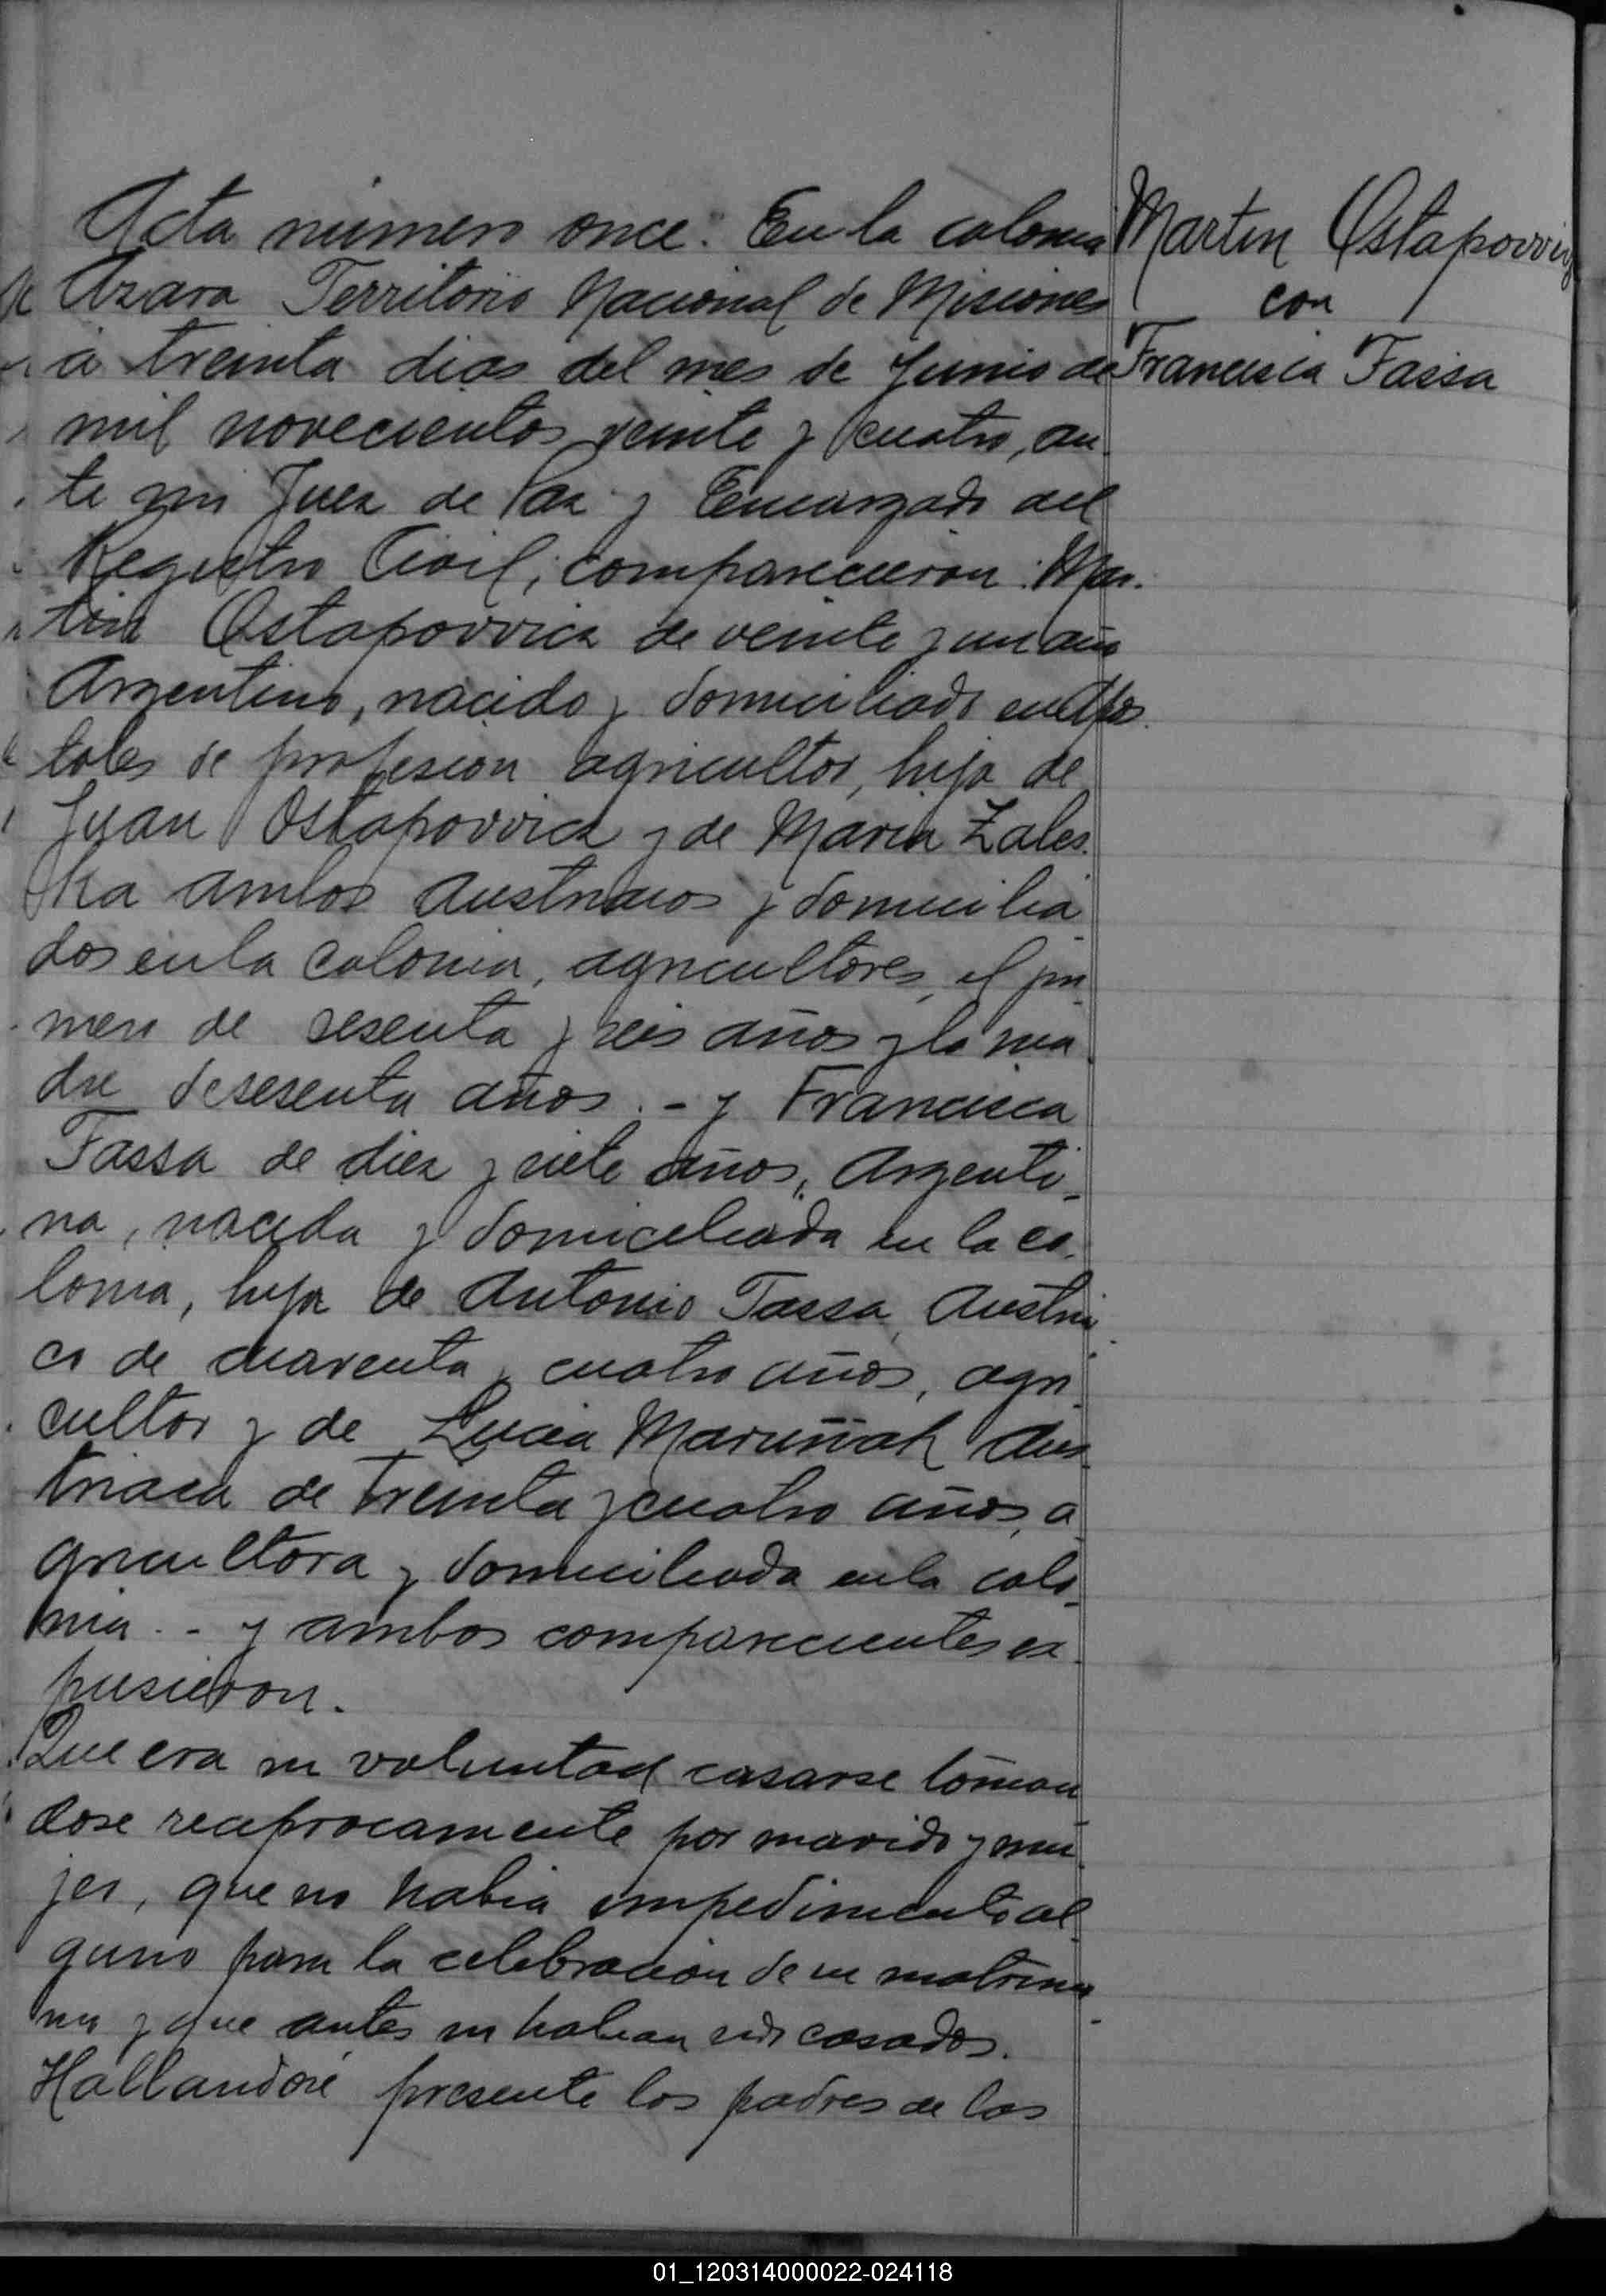 Acta número once: En la colonia
Azara Territorio Nacional de Misiones
á treinta dias del mes de Junio de
mil novecientos veinte y cuatro, an-
te mi Juez de Paz y Encargado del
Registro Civil, comparecieron: Mar-
tin Ostapovvicz de veinte y un años
Argentino, nacido y domiciliado en Apos-
toles de profesion agricultor, hijo de
Juan Ostapovvicz y de Maria Zales-
ka ambos Austriacos y domicilia-
dos en la colonia, agricultores, el pri-
mero de sesenta y seis años y la ma-
dre de sesenta años. - y Francisca
Tassa de diez y siete años, Argenti-
na, nacida y domiciliada en la co-
lonia, hija de Antonio Tassa, Austria-
co de cuarenta y cuatro años, agri-
cultor y de Lucia Maruñak Aus-
triaca de treinta y cuatro años, a-
gricultora y domiciliada en la colo-
nia. - y ambos comparecientes ex-
pusieron.
Que era su voluntad casarse tóman-
dose reciprocamente por marido y mu-
jer, que no habia impedimento al-
guno para la celebracion de su matrimo-
nio y que antes no habian sido casados.
Hallandose presente los padres de los
Martin Ostapovvicz
con
Francisca Tassa
01_120314000022-024118